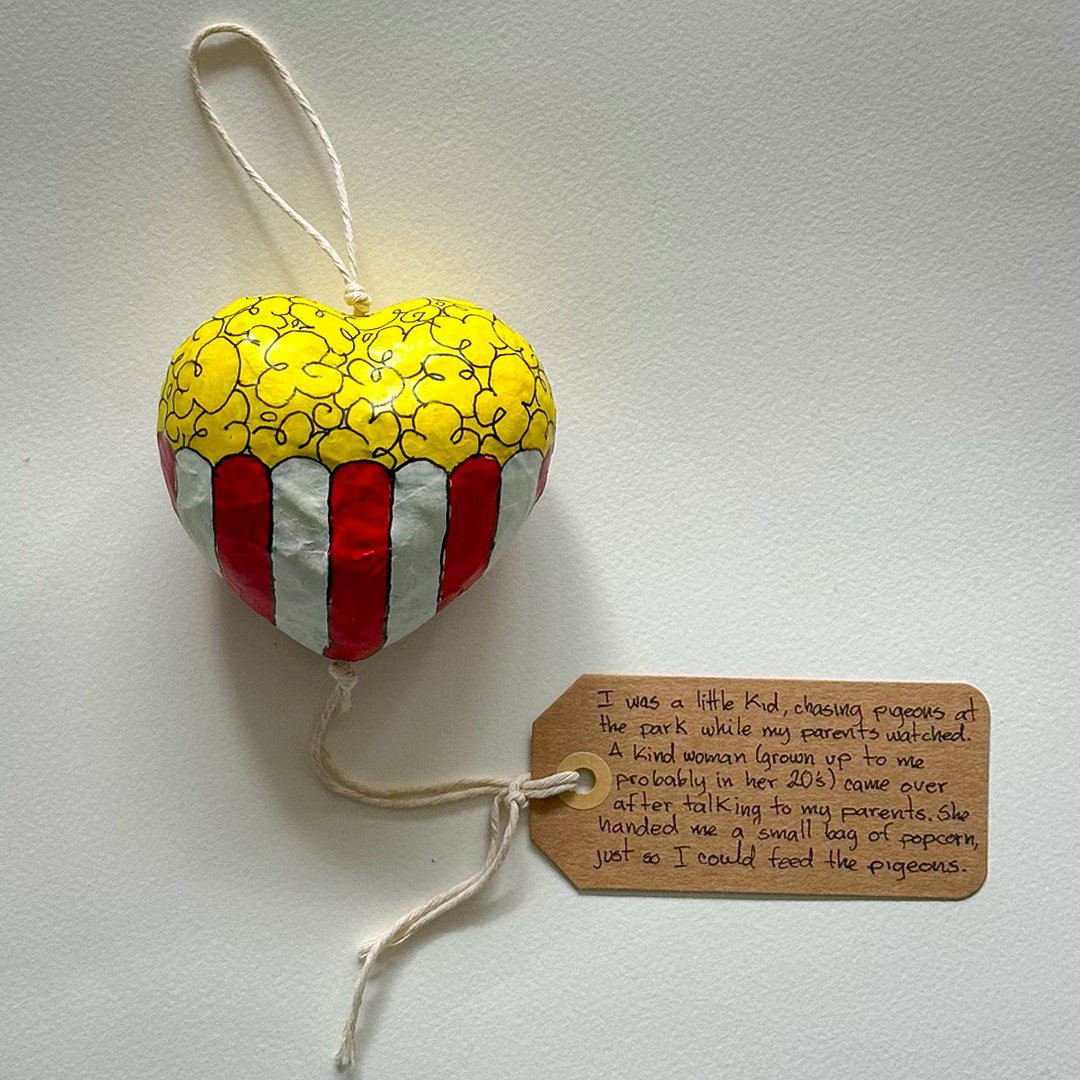 I was a little kid, chasing pigeons at
the park while my parents watched.
A kind woman (grown up to me
probably in her 20's) came over
after talking to my parents. She
handed me a small bag of popcorn,
just so I could feed the pigeons.